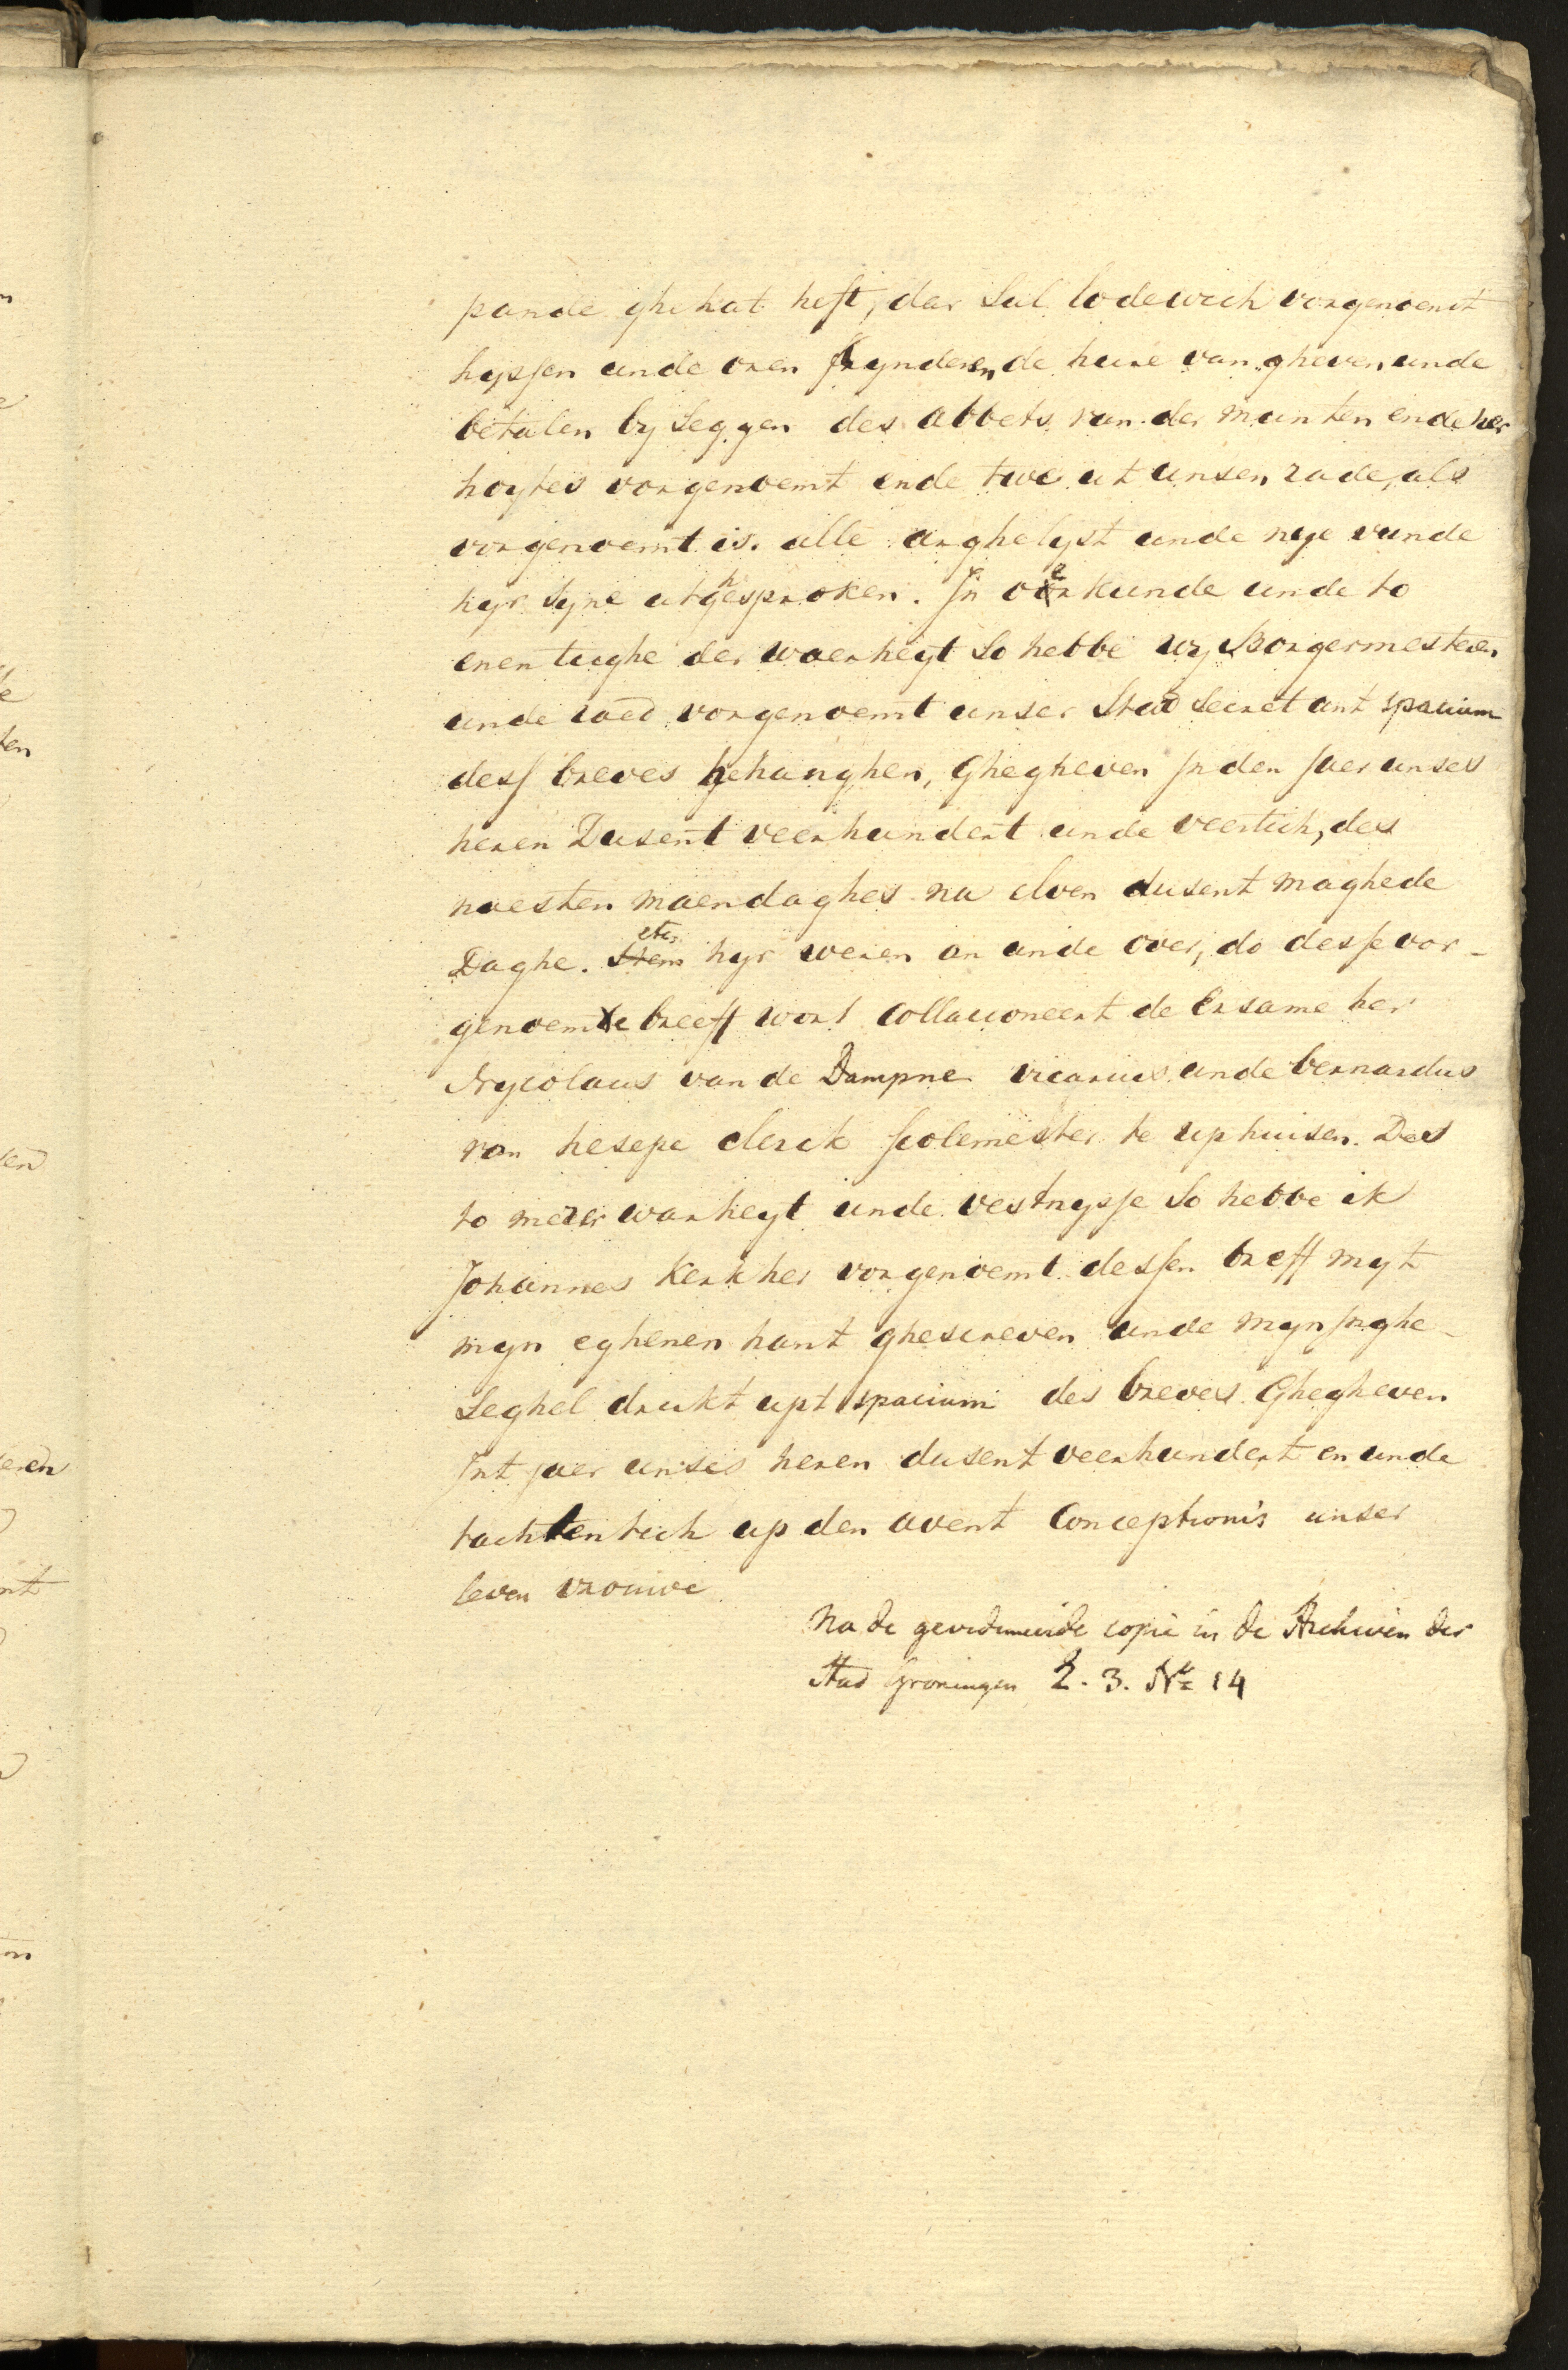 pande ghehat heft, dar Sal lodewich vorgenoemt
hyssen unde oren kynderen de hure van gheven unde
betalen by Seggen des abbets van der munten ende her
hoytes vorgenoemt ende twe ut unsen rade, als
vorgenoemt is. alle arghelyst unde nye vunde
hyr Syne utghesproken. In oerkunde unde to
enen tughe der waerheyt So hebbe wy Borgermesteren
unde raed vorgenoemt unser Stad Secret ant spacium
dess breves gehanghen, Ghegheven Jn den Jaer unses
heren Dusent veerhundert unde veertich, des
naesten maendaghes na elven dusent maghede
Daghe. etc. hyr weren an unde over, do desse vor-
genoemde breeff wort Collacioneert de Ersame her
Nycolaus van de Dampne vicarius unde bernardus
van hesepe clerck scolemester te uphuisen. Des
to merer warheyt unde vestnysse So hebbe ik
Johannes Kerkher vorgenoemt dessen breff myt
myn eghenen hant ghescreven unde myn Jnghe-
Seghel drukt upt spacium des breves Ghegheven
Jnt jaer unses heren dusent veerhundert en unde
tachtentich up den avent Conceptionis unser
leven vrouwe
Na de gevidimeerde copie in de Archiven der
Stad Groningen 2. 3. No 14